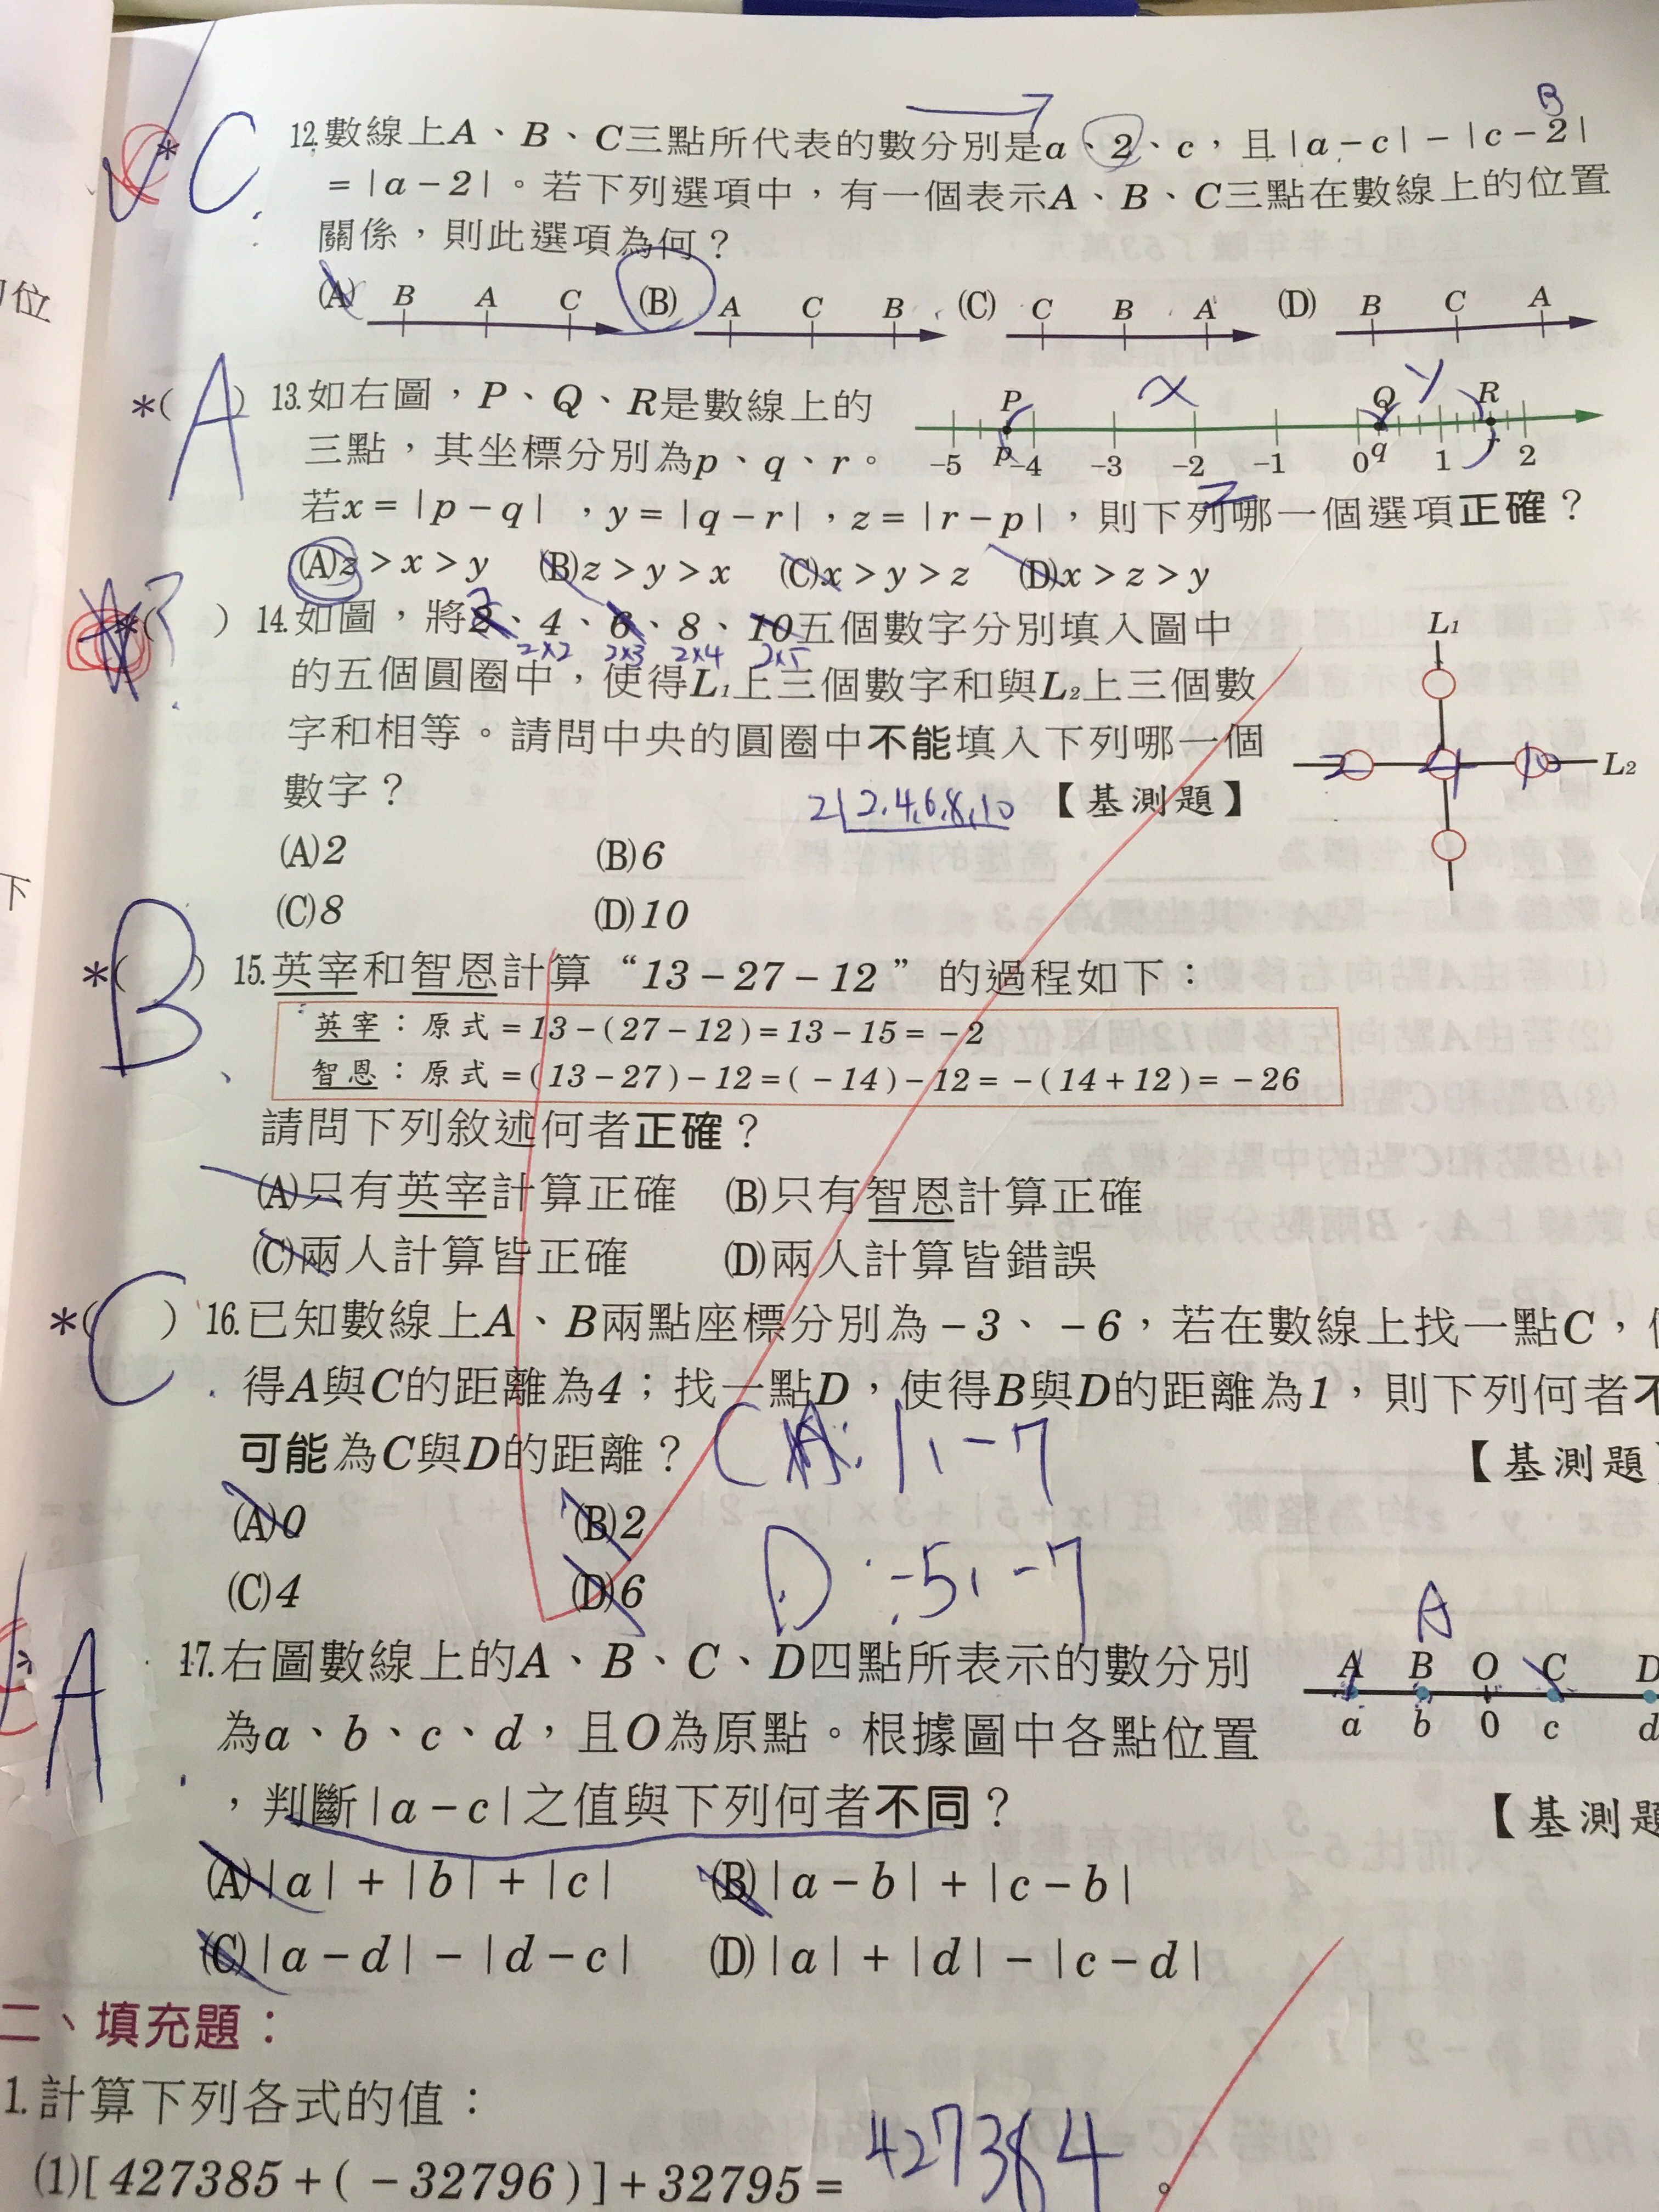 C
12.數線上A、B、C三點所代表的數分別是a、2、c,且|a-c|-|c-2|
B
=|a-2|。若下列選項中,有一個表示A、B、C三點在數線上的位置
關係,則此選項為何?
(A) B A C (B) A C B (C) C B A (D) B C A
*(A) 13.如右圖,P、Q、R是數線上的
三點,其坐標分別為p、q、r。
P x Q y R
-5 p -4 -3 -2 -1 0 q 1 r 2
z
若x=|p-q|,y=|q-r|,z=|r-p|,則下列哪一個選項正確?
(A)z>x>y (B)z>y>x (C)x>y>z (D)x>z>y
*(?) 14.如圖,將2、4、6、8、10五個數字分別填入圖中
2×2 2×3 2×4 2×5
的五個圓圈中,使得L1上三個數字和與L2上三個數
字和相等。請問中央的圓圈中不能填入下列哪一個
數字?
2 2,4,6,8,10 【基測題】
L1
2 4 10 L2
(A)2 (B)6
(C)8 (D)10
*(B) 15.英宰和智恩計算“13-27-12”的過程如下:
英宰:原式=13-(27-12)=13-15=-2
智恩:原式=(13-27)-12=(-14)-12=-(14+12)=-26
請問下列敘述何者正確?
(A)只有英宰計算正確 (B)只有智恩計算正確
(C)兩人計算皆正確 (D)兩人計算皆錯誤
*(C) 16.已知數線上A、B兩點座標分別為-3、-6,若在數線上找一點C,
得A與C的距離為4;找一點D,使得B與D的距離為1,則下列何者不
可能為C與D的距離? C : 1, -7 【基測題
(A)0 (B)2
(C)4 (D)6 D : -5, -7
A 17.右圖數線上的A、B、C、D四點所表示的數分別
為a、b、c、d,且O為原點。根據圖中各點位置
A
A B O C D
a b 0 c d
,判斷|a-c|之值與下列何者不同? 【基測題
(A)|a|+|b|+|c| (B)|a-b|+|c-b|
(C)|a-d|-|d-c| (D)|a|+|d|-|c-d|
二、填充題:
1.計算下列各式的值:
(1)[427385+(-32796)]+32795= 427384 。